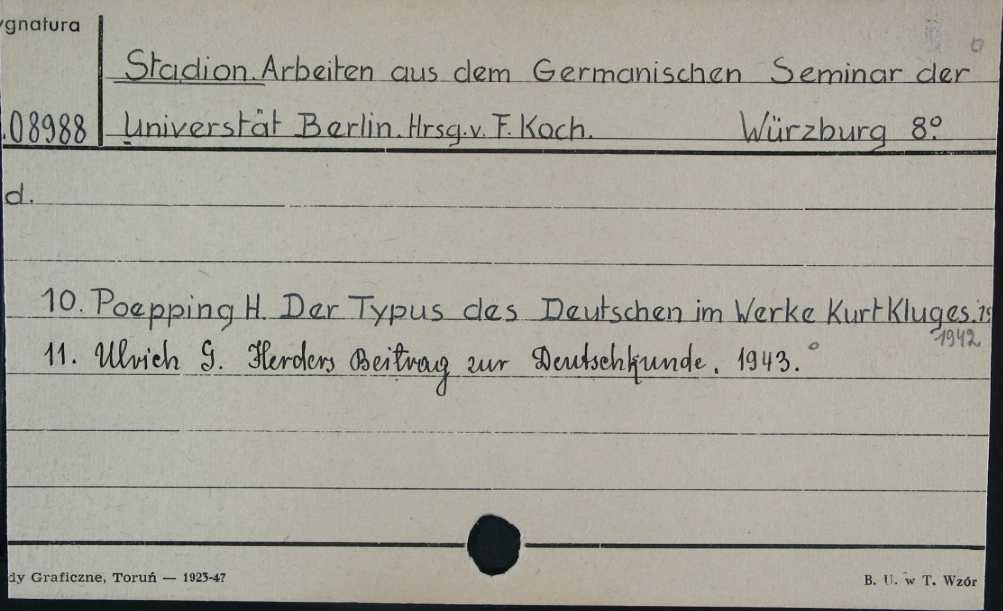 ygnatura
Stadion. Arbeiten aus dem Germanischen Seminar der
.08988 Universtät Berlin. Hrsg. v. F. Koch. Würzburg 8º
d.
10. Poepping H. Der Typus des Deutschen im Werke Kurt Kluges. 19
1942
11. Ulrich G. Herders Beitrag zur Deutschkunde. 1943.
dy Graficzne, Toruń — 1923-47
B. U. w T. Wzór